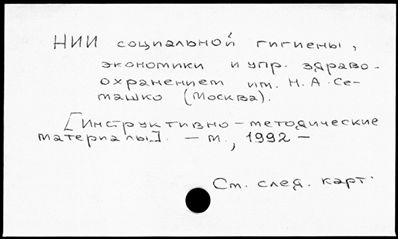 НИИ социальной гигиены,
экономики и упр. здраво-
охранением им. Н.А.Се-
машко (Москва).
[Инструктивно-методические
материалы]. - М., 1992 -
См. след. карт.